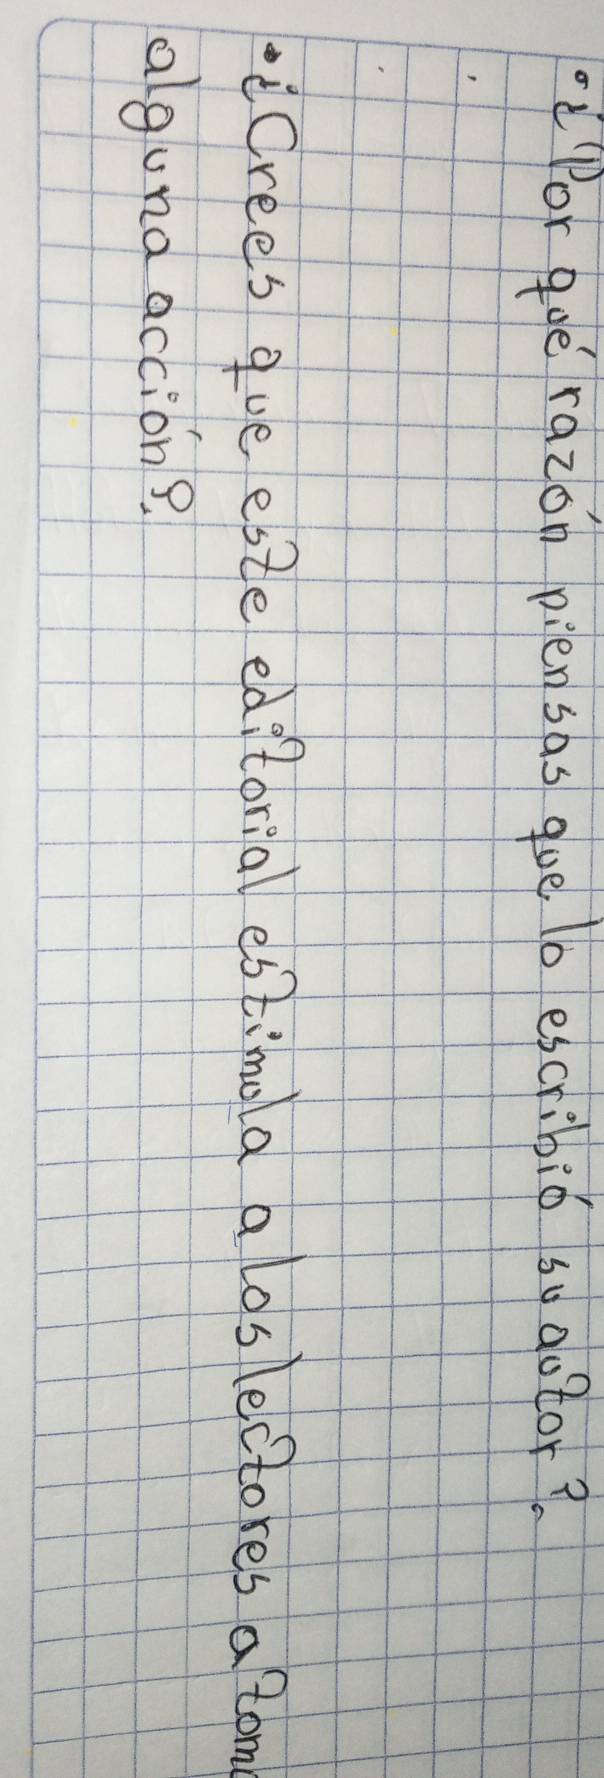 • ¿Por qué razón piensas que lo escribió su autor?
• ¿Crees que este editorial estimula a los lectores a
alguna acción?